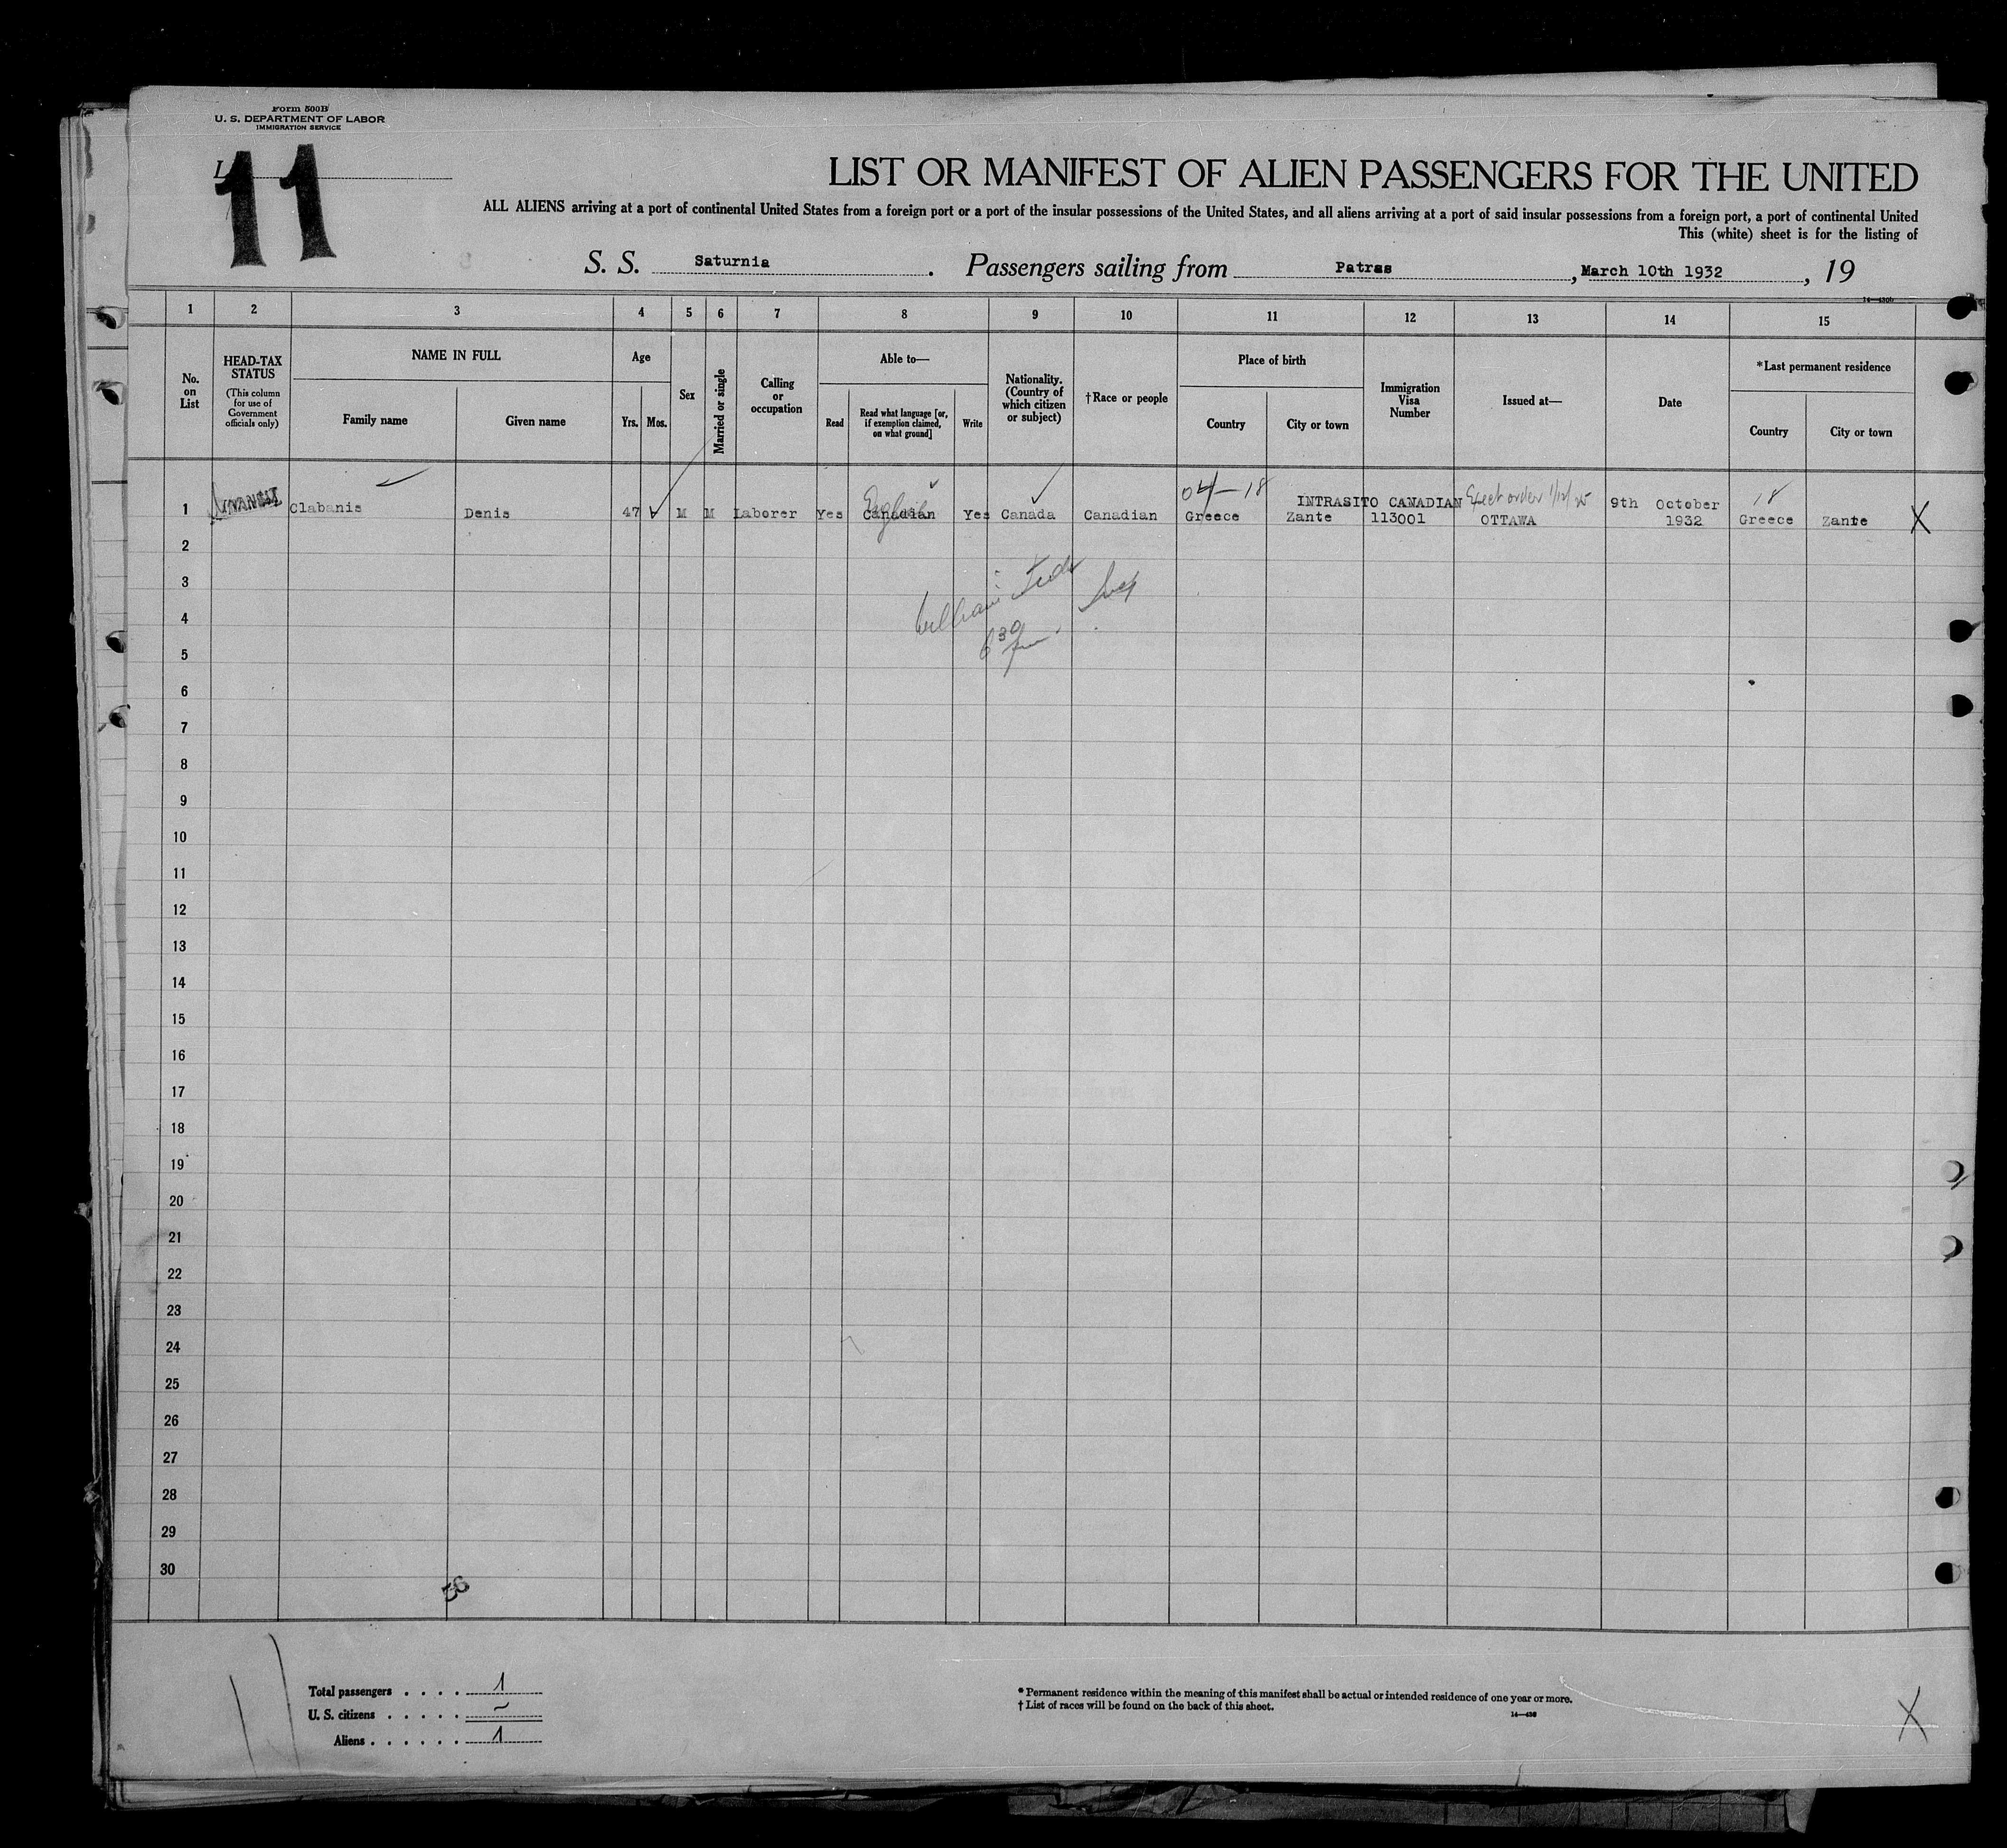 Form 500B
U. S. DEPARTMENT OF LABOR
IMMIGRATION SERVICE
11
LIST OR MANIFEST OF ALIEN PASSENGERS FOR THE UNITED
ALL ALIENS arriving at a port of continental United States from a foreign port or a port of the insular possessions of the United States, and all aliens arriving at a port of said insular possessions from a foreign port, a port of continental United
This (white) sheet is for the listing of
S. S. Saturnia. Passengers sailing from Patras, March 10th 1932, 19
1 2 3 4 5 6 7 8 9 10 11 12 13 14 15
No. on List
HEAD-TAX STATUS
(This column for use of Government officials only)
NAME IN FULL
Family name Given name
Age
Yrs. Mos.
Sex
Married or single
Calling or occupation
Able to—
Read
Read what language [or, if exemption claimed, on what ground]
Write
Nationality. (Country of which citizen or subject)
†Race or people
Place of birth
Country City or town
Immigration Visa Number
Issued at—
Date
*Last permanent residence
Country City or town
04—18 18
INTRASITO CANADIAN
1 Clabanis Denis 47 M M Laborer Yes Canadian English Yes Canada Canadian Greece Zante 113001 OTTAWA 9th October 1932 Greece Zante X
2
3
4 William
5 6 30 pm
6
7
8
9
10
11
12
13
14
15
16
17
18
19
20
21
22
23
24
25
26
27
28
29
30
Total passengers . . . . 1
U. S. citizens . . . . . ~
Aliens . . . . . . 1
* Permanent residence within the meaning of this manifest shall be actual or intended residence of one year or more.
† List of races will be found on the back of this sheet.
X